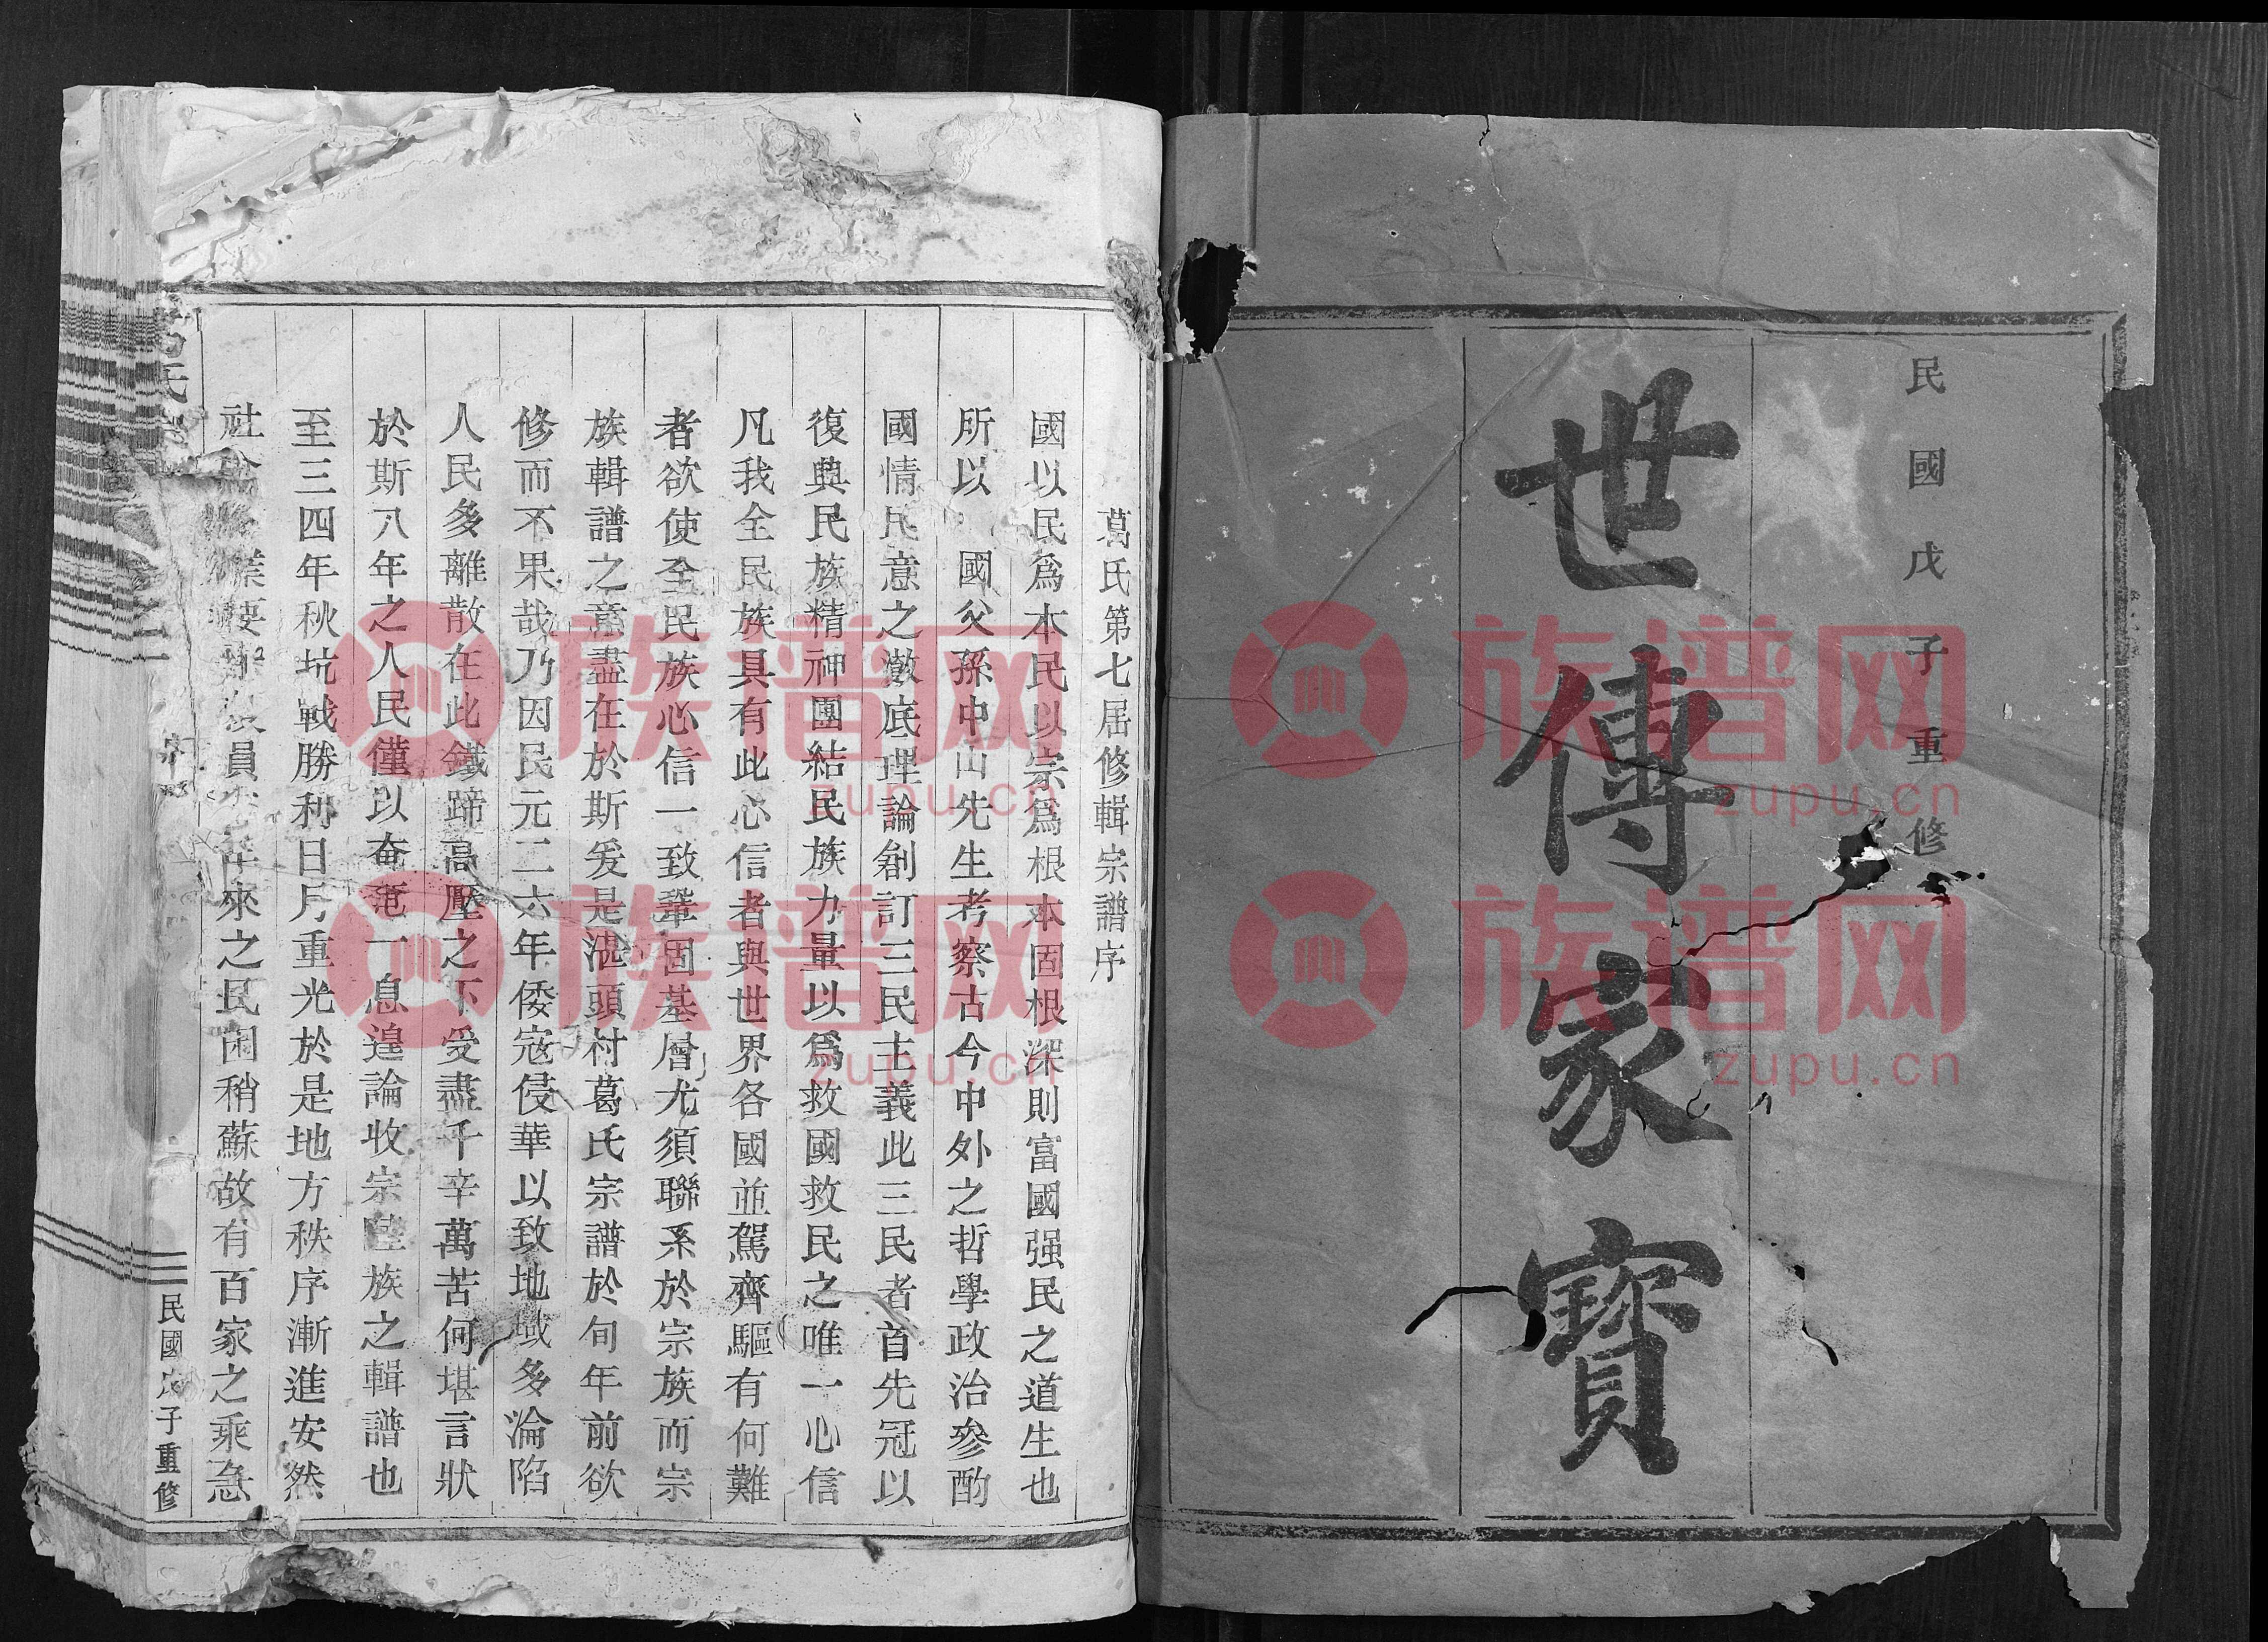 民國戊子重修
世傳家寶
葛氏第七屆修輯宗譜序
國以民爲本民以宗爲根本固根深則富國强民之道生也
所以 國父孫中山先生考察古今中外之哲學政治參酌
國情民意之澈底理論創訂三民主義此三民者首先冠以
復興民族精神團結民族力量以爲救國救民之唯一心信
凡我全民族具有此心信者與世界各國並駕齊驅有何難
者欲使全民族心信一致鞏固基層尤須聯系於宗族而宗
族輯譜之意盡在於斯爰是湛頭村葛氏宗譜於旬年前欲
修而不果哉乃因民元二六年倭寇侵華以致地域多淪陷
人民多離散在此鐵蹄高壓之下受盡千辛萬苦何堪言狀
於斯八年之人民僅以奄奄一息遑論收宗睦族之輯譜也
至三四年秋抗戰勝利日月重光於是地方秩序漸進安然
社 業 員 年來之民困稍蘇故有百家之乘急
氏
民國戊子重修
族譜网
zupu.cn
族譜网
zupu.cn
族譜网
zupu.cn
族譜网
zupu.cn